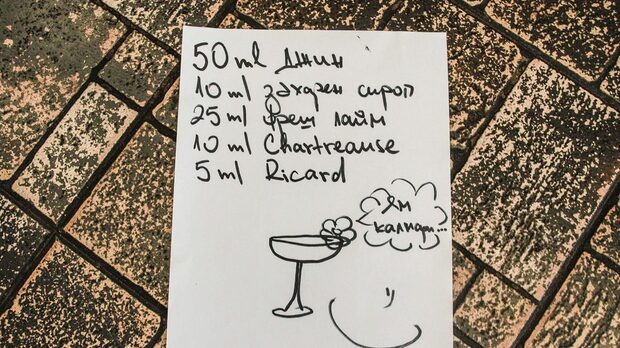 50 ml Джин
10 ml захарен сироп
25 ml фреш лайм
10 ml Chartreause
5 ml Ricard
Ям